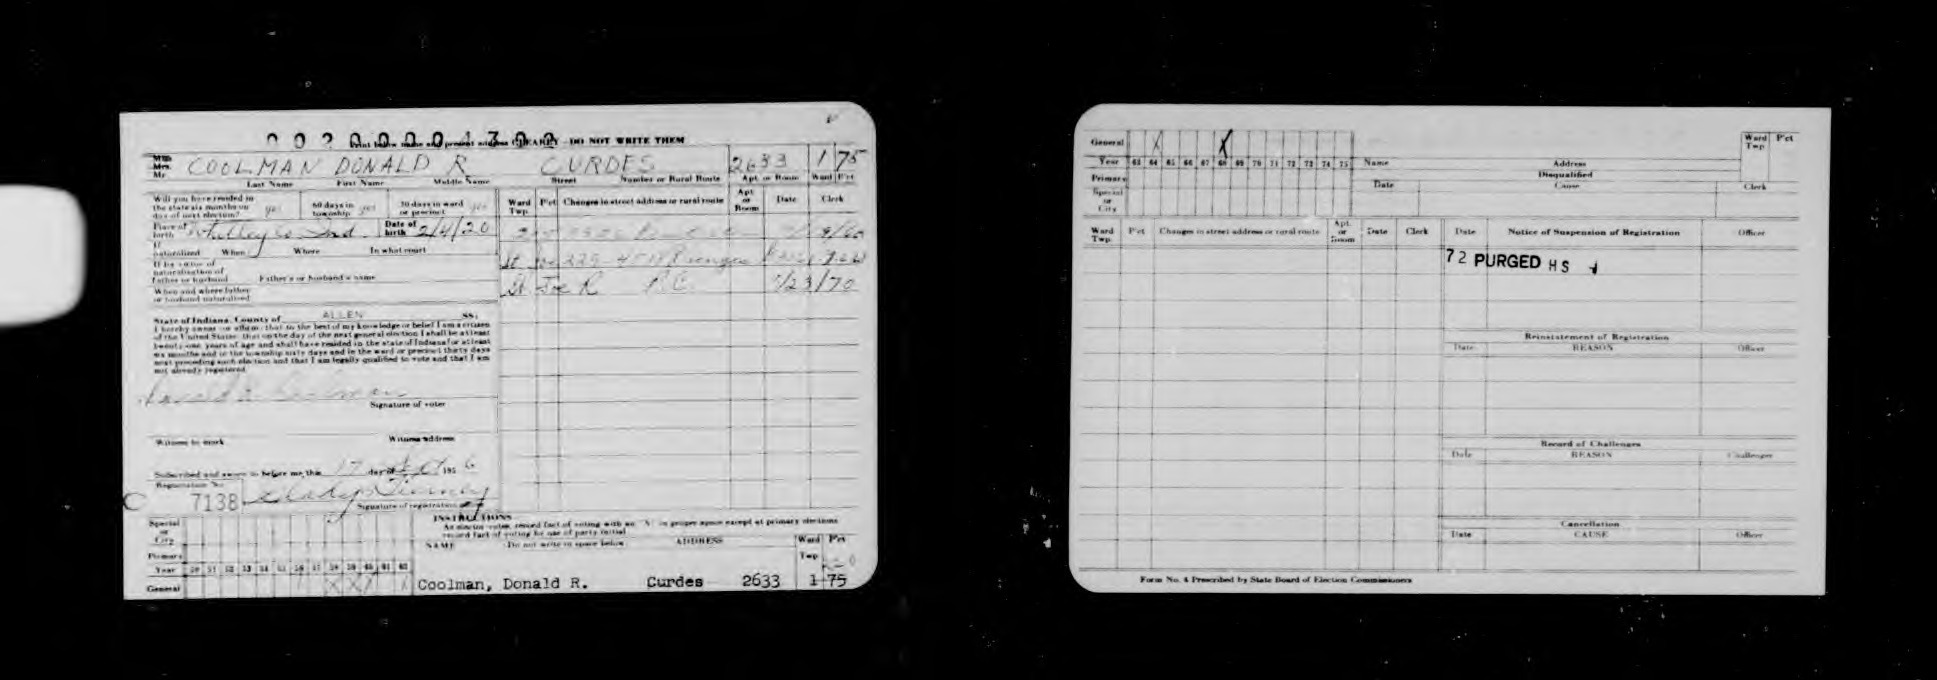 0020000 1702
Print below name and present address CLEARLY - DO NOT WRITE THEM
Miss
Mrs. COOLMAN DONALD R. CURDES 2633 1 75
Mr.
Last Name First Name Middle Name Street Number or Rural Route Apt. or Room Ward P'ct
Will you have resided in the state six months on day of next election? yes 60 days in township yes 30 days in ward or precinct yes
Ward Twp. P'ct Changes in street address or rural route Apt. or Room Date Clerk
Place of birth Whitley Co Ind. Date of birth 2/4/20
If naturalized When Where In what court
If by virtue of naturalization of Father or husband Father's or husband's name
When and where father or husband naturalized
St Joe R P.C. 7/23/70
State of Indiana, County of ALLEN SS:
I hereby swear or affirm that to the best of my knowledge or belief I am a citizen
of the United States; that on the day of the next general election I shall be at least
twenty-one years of age and shall have resided in the state of Indiana for at least
six months and in the township sixty days and in the ward or precinct thirty days
next preceding such election and that I am legally qualified to vote and that I am
not already registered.
Donald R. Coolman
Signature of voter
Witness to mark Witness address
Subscribed and sworn to before me, this 17 day of 195 6
Registration No.
C 7138 Gladys Tierney
Signature of registration
INSTRUCTIONS
As elector votes, record fact of voting with an "X" in proper space except at primary elections
record fact of voting by use of party initial
Special or City
NAME Do not write in space below ADDRESS Ward Twp P'ct
Primary
Year 50 51 52 53 54 55 56 57 58 59 60 61 62
General X X Coolman, Donald R. Curdes 2633 1 75
General X
Year 63 64 65 66 67 68 69 70 71 72 73 74 75 Name Address Ward Twp P'ct
Primary Disqualified
Special or City Date Cause Clerk
Ward Twp. P'ct Changes in street address or rural route Apt. or Room Date Clerk Date Notice of Suspension of Registration Officer
72 PURGED HS
Reinstatement of Registration
Date REASON Officer
Record of Challenges
Date REASON Challenger
Cancellation
Date CAUSE Officer
Form No. 4 Prescribed by State Board of Election Commissioners